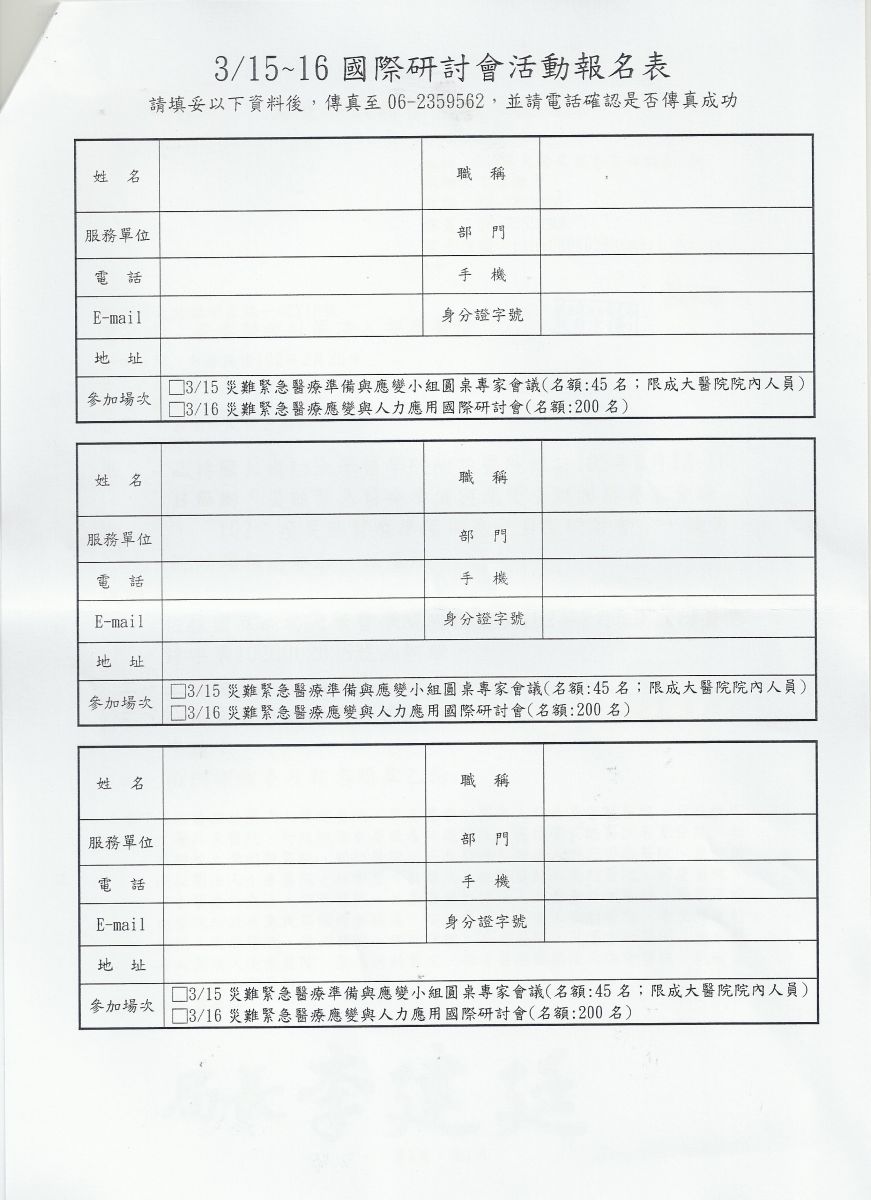 3/15~16 國際研討會活動報名表
請填妥以下資料後，傳真至 06-2359562，並請電話確認是否傳真成功
姓 名 職 稱
服務單位 部 門
電 話 手 機
E-mail 身分證字號
地 址
參加場次 □3/15 災難緊急醫療準備與應變小組圓桌專家會議(名額:45 名；限成大醫院院內人員)
□3/16 災難緊急醫療應變與人力應用國際研討會(名額:200 名)
姓 名 職 稱
服務單位 部 門
電 話 手 機
E-mail 身分證字號
地 址
參加場次 □3/15 災難緊急醫療準備與應變小組圓桌專家會議(名額:45 名；限成大醫院院內人員)
□3/16 災難緊急醫療應變與人力應用國際研討會(名額:200 名)
姓 名 職 稱
服務單位 部 門
電 話 手 機
E-mail 身分證字號
地 址
參加場次 □3/15 災難緊急醫療準備與應變小組圓桌專家會議(名額:45 名；限成大醫院院內人員)
□3/16 災難緊急醫療應變與人力應用國際研討會(名額:200 名)